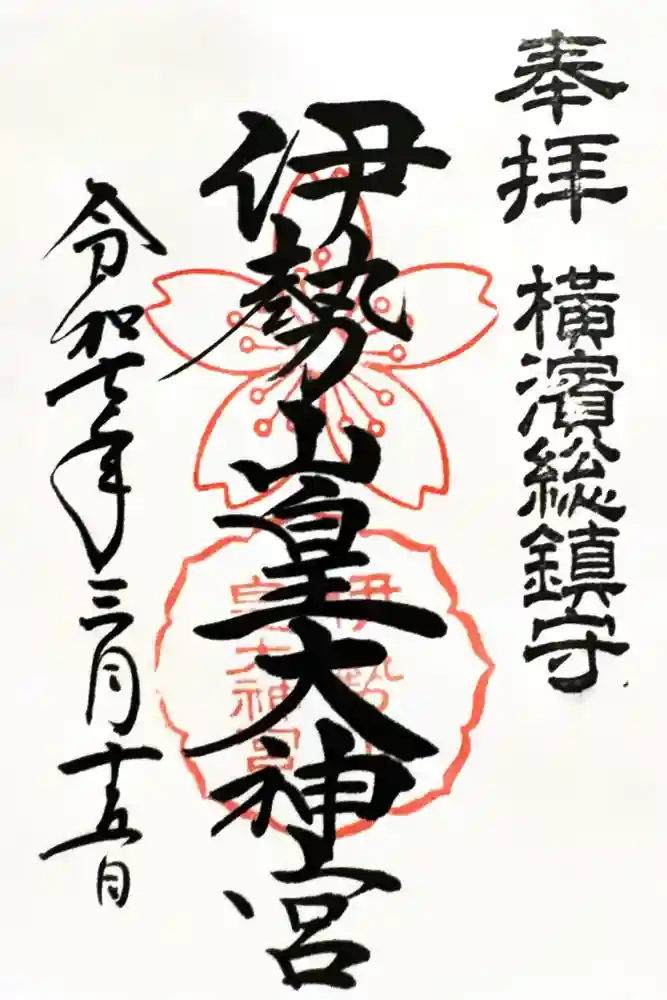 奉拝
横濱総鎮守
伊勢山皇大神宮
伊勢山
皇大神宮
令和七年三月十五日